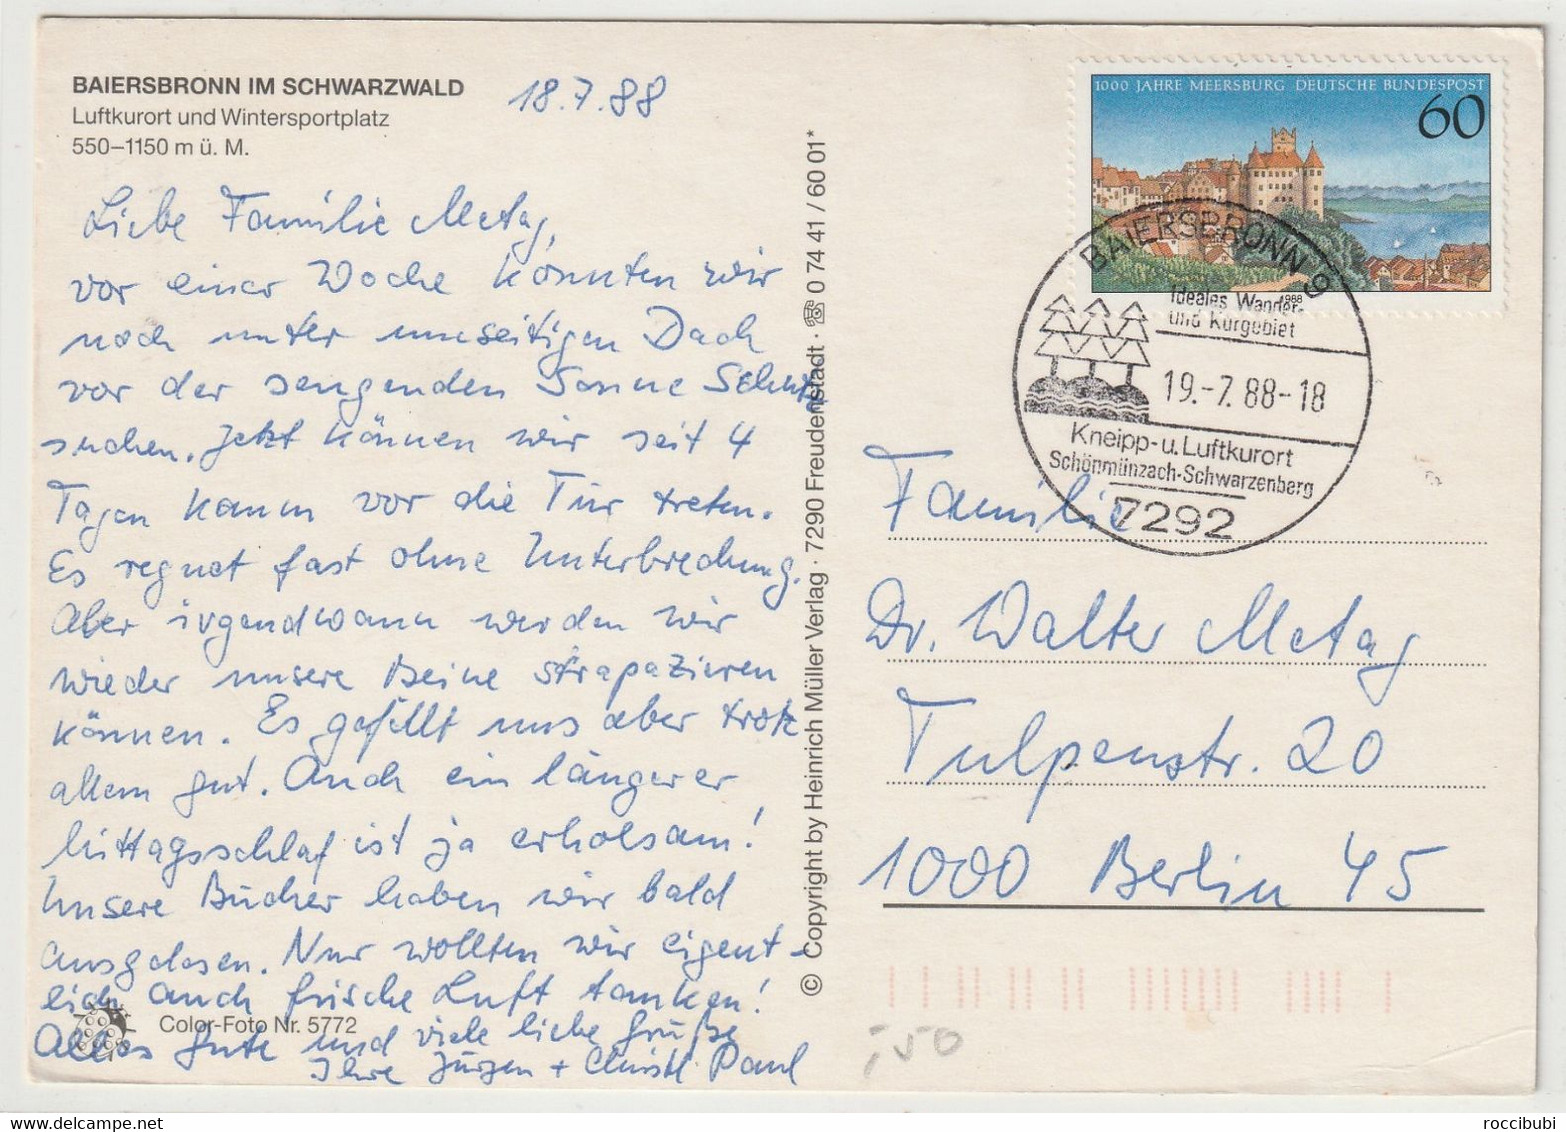 BAIERSBRONN IM SCHWARZWALD
Luftkurort und Wintersportplatz
550–1150 m ü. M.
18.7.88
Liebe Familie Metag,
vor einer Woche konnten wir
noch unter unseitigen Dach
vor der sengenden Sonne Schutz
suchen. Jetzt können wir seit 4
Tagen kaum vor die Tür treten.
Es regnet fast ohne Unterbrechung.
Aber irgendwann werden wir
wieder unsere Beine strapazieren
können. Es gefällt uns aber trotz
allem gut. Auch ein längerer
Mittagsschlaf ist ja erholsam!
Unsere Bücher haben wir bald
ausgelesen. Nur wollten wir eigent-
lich auch frische Luft tanken!
Alles Gute und viele liebe Grüße
Ihre Jürgen + Christl Paul
Color-Foto Nr. 5772
© Copyright by Heinrich Müller Verlag · 7290 Freudenstadt · ☎ 0 74 41 / 60 01*
1000 JAHRE MEERSBURG DEUTSCHE BUNDESPOST
60
1988
BAIERSBRONN 9
Ideales Wander-
und Kurgebiet
19.-7.88-18
Kneipp-u. Luftkurort
Schönmünzach-Schwarzenberg
7292
Familie
Dr. Walter Metag
Tulpenstr. 20
1000 Berlin 45
,50
roccibubi